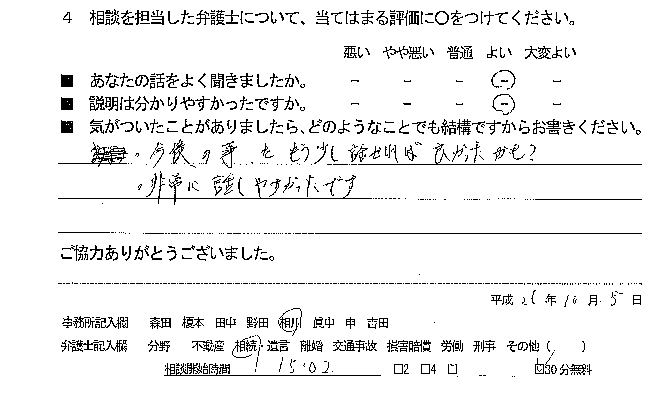 4 相談を担当した弁護士について、当てはまる評価に○をつけてください。
悪い やや悪い 普通 よい 大変よい
■ あなたの話をよく聞きましたか。 － － － － －
■ 説明は分かりやすかったですか。 － － － － －
■ 気がついたことがありましたら、どのようなことでも結構ですからお書きください。
・今後の事をもう少し話せれば良かったかも?
・非常に話しやすかったです
ご協力ありがとうございました。
平成 26 年 10 月 5 日
事務所記入欄 森田 榎本 田中 野田 相川 眞中 申 吉田
弁護士記入欄 分野 不動産 相続・遺言 離婚 交通事故 損害賠償 労働 刑事 その他（ ）
相談開始時間 15:02 □2 □4 □ ☑30分無料